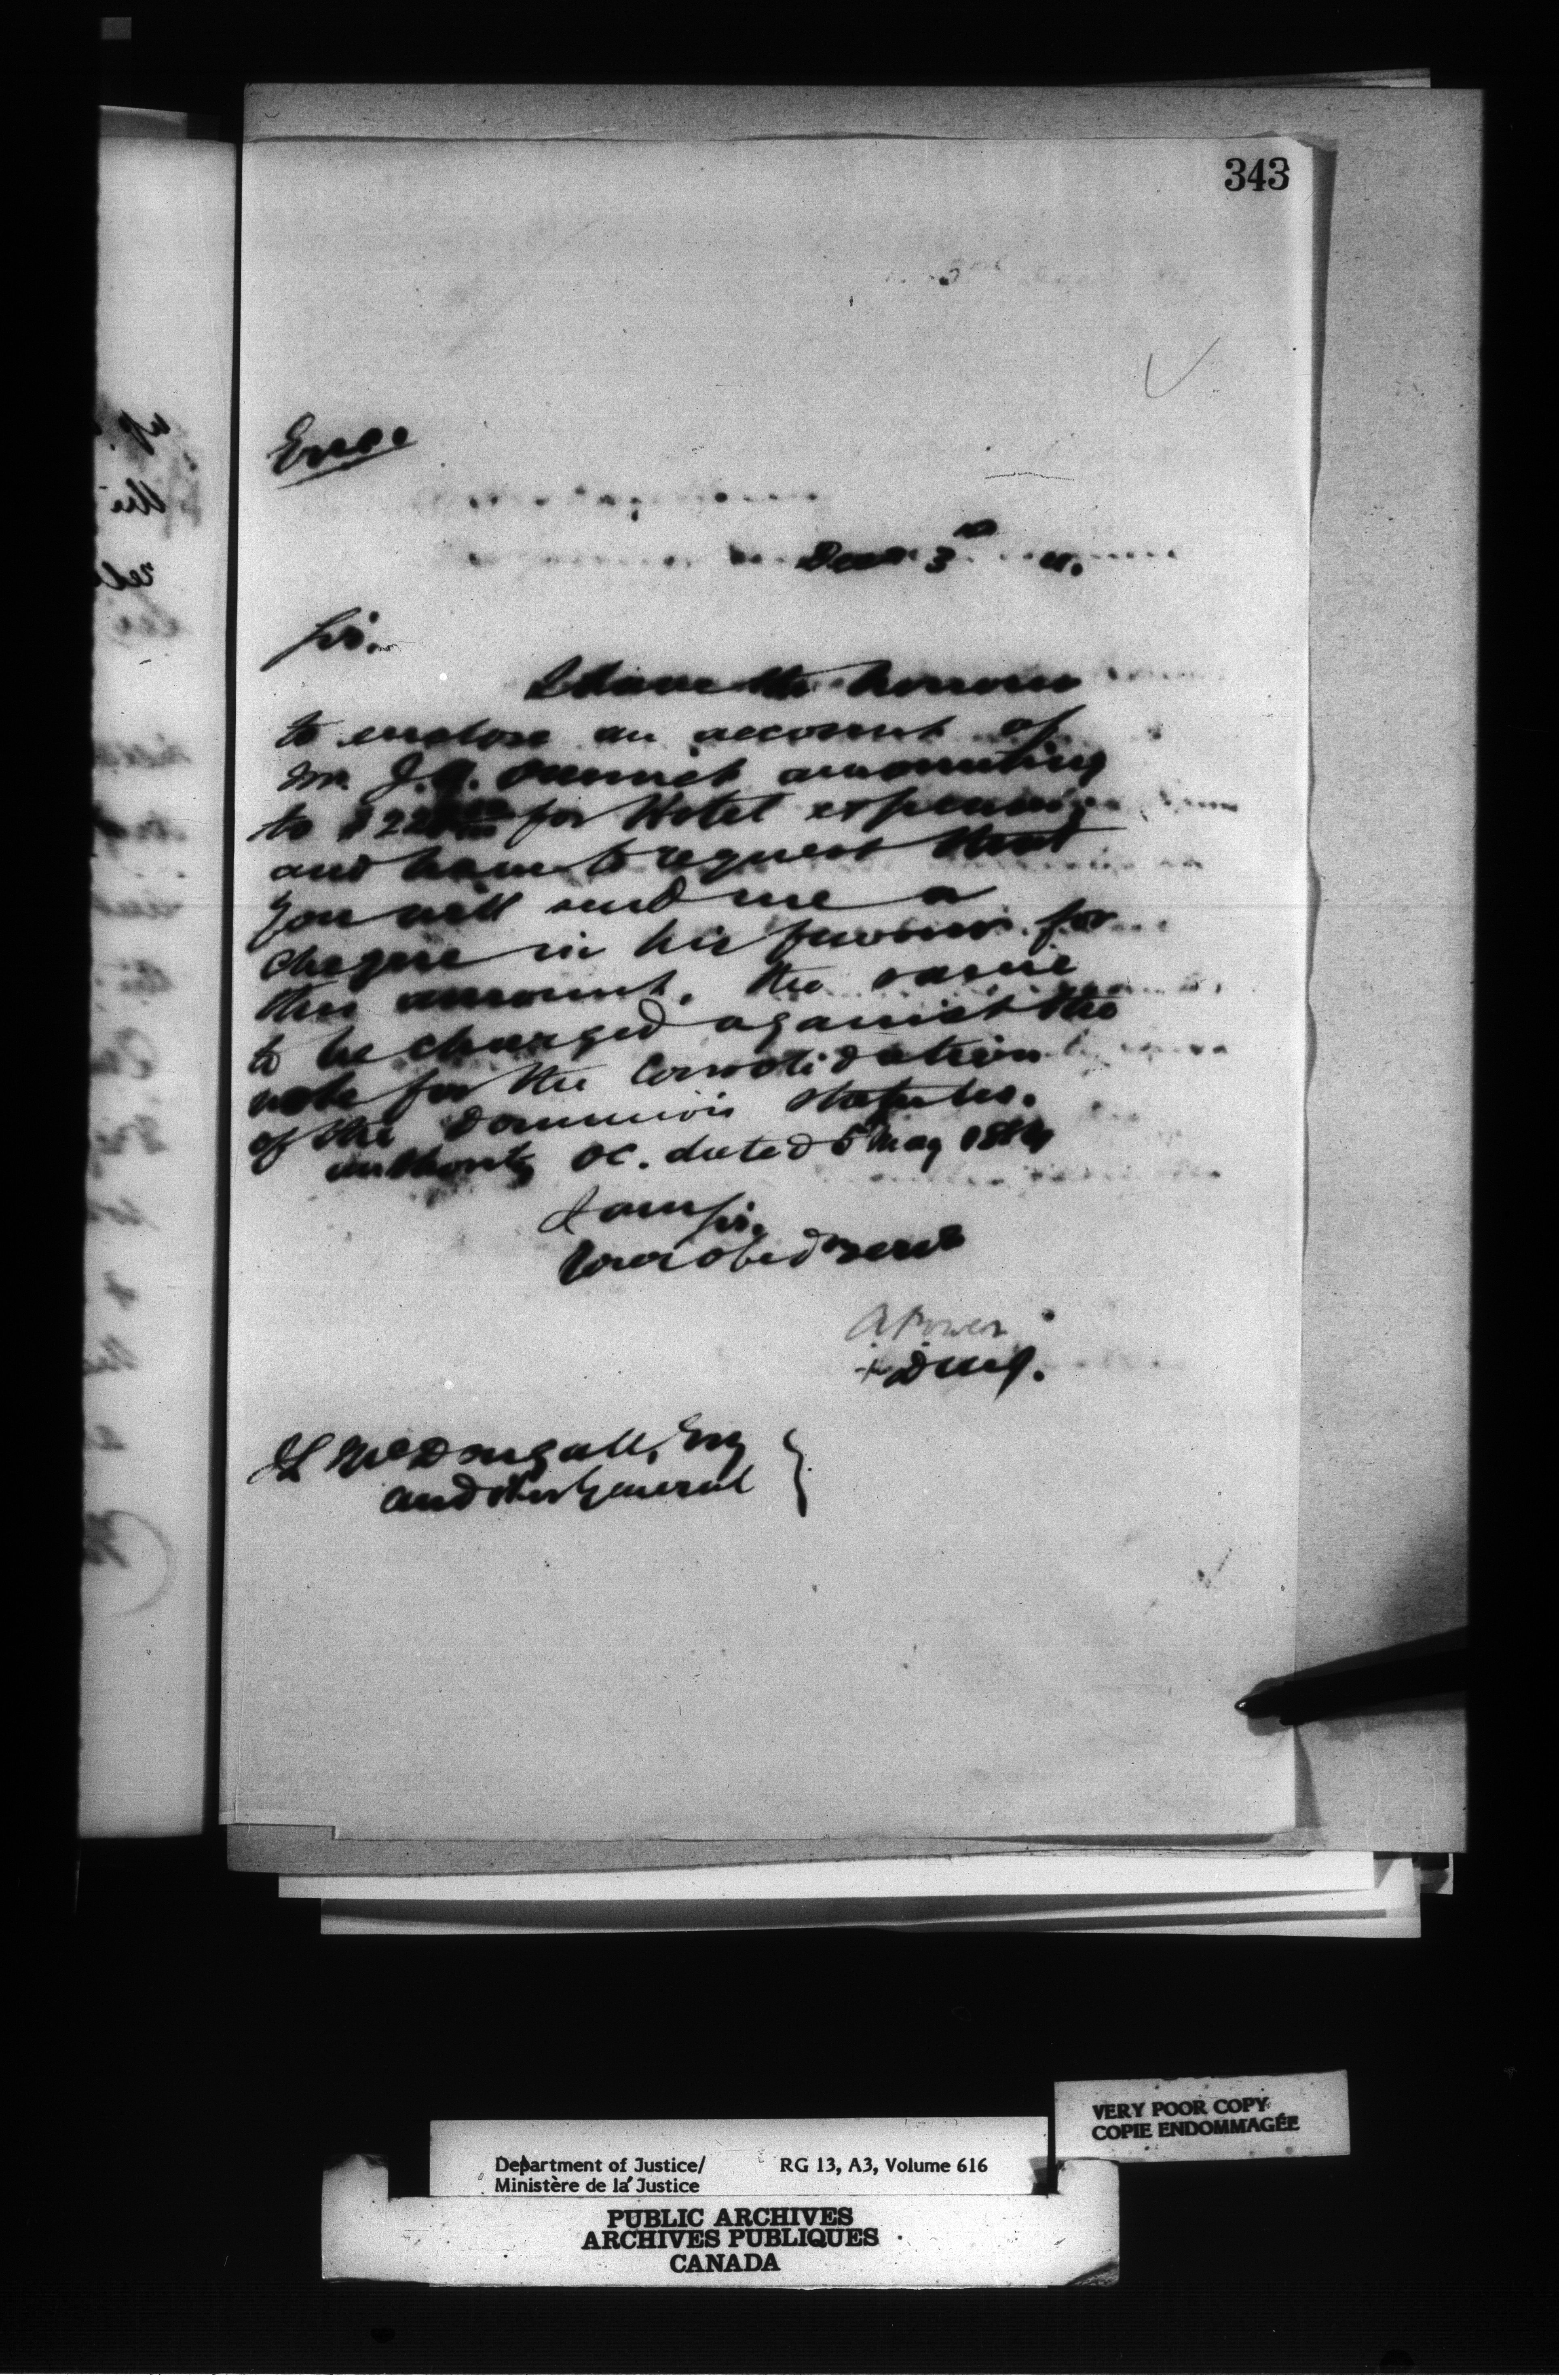 343
Enc.
Dec 3rd
Sir.
I have the honour
to enclose an account of
Mr. J.A. amounting
to $22 for Hotel expenses
and have to request that
you will send me a
cheque in his favour for
the amount, the same
to be charged against the
vote for the Consolidation
of the Dominion Statutes.
authority OC. dated 5 May 1884
I am Sir.
Your obed serv
A Power
J L McDougall, Esq
Auditor General
VERY POOR COPY
COPIE ENDOMMAGÉE
Department of Justice/ RG 13, A3, Volume 616
Ministère de la Justice
PUBLIC ARCHIVES
ARCHIVES PUBLIQUES
CANADA